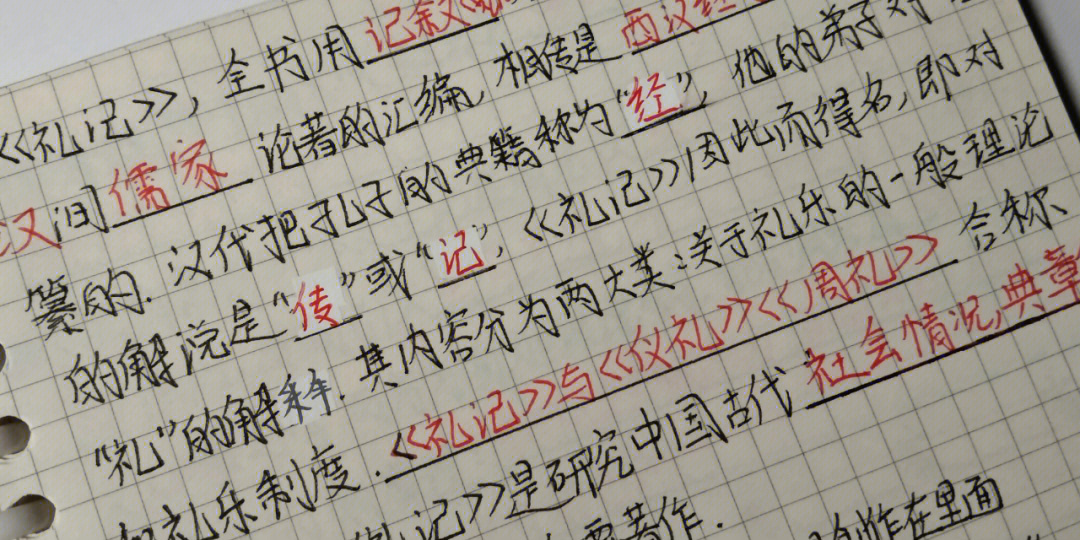 《礼记》, 全书用记叙文
汉间儒家论著的汇编, 相传是西汉经
纂的. 汉代把孔子的典籍称为“经”, 他的弟子对
的解说是“传”或“记”, 《礼记》因此而得名, 即对
“礼”的解释. 其内容分为两大类:关于礼乐的一般理论
和礼乐制度. 《礼记》与《仪礼》《周礼》合称
礼记》是研究中国古代社会情况,典章
要著作. 创作在里面